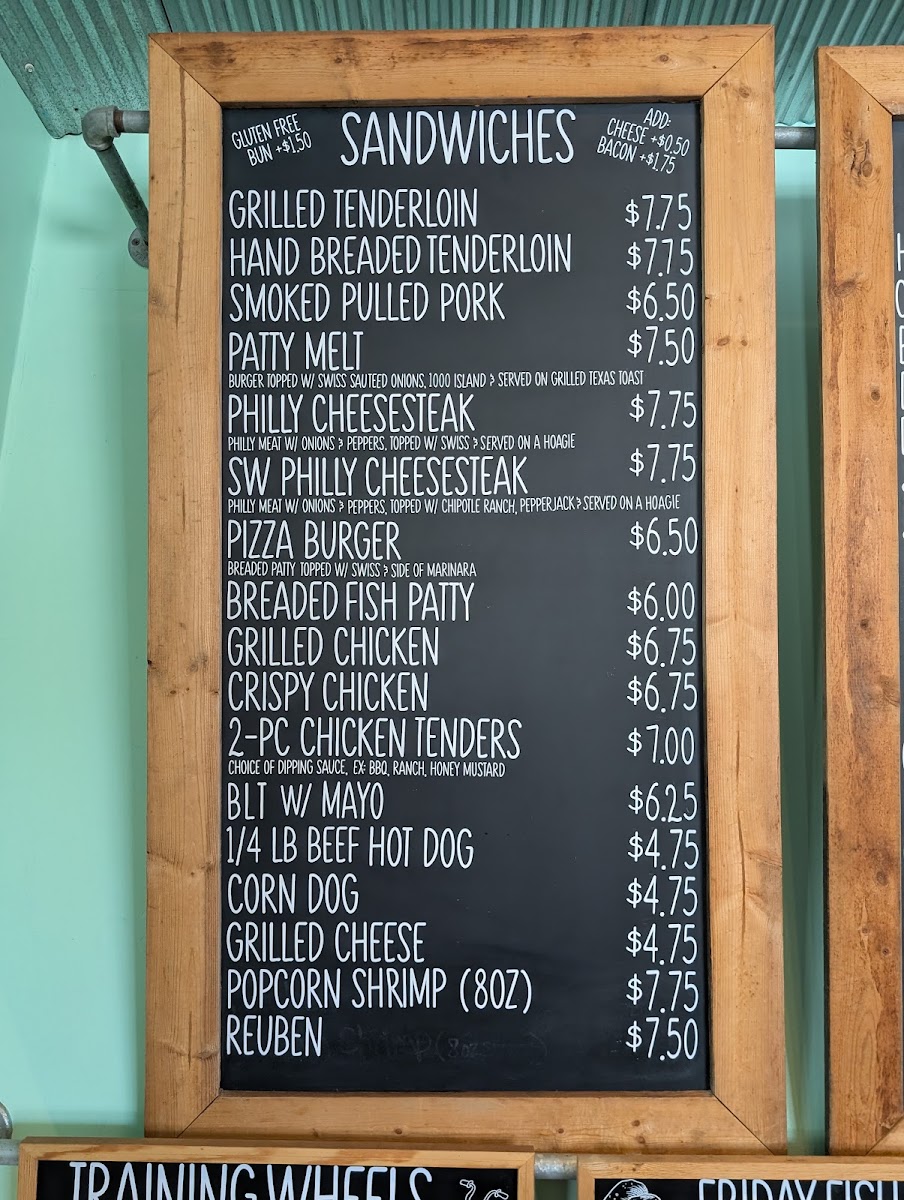 GLUTEN FREE
BUN +$1.50
SANDWICHES
ADD:
CHEESE +$0.50
BACON +$1.75
GRILLED TENDERLOIN $7.75
HAND BREADED TENDERLOIN $7.75
SMOKED PULLED PORK $6.50
PATTY MELT $7.50
BURGER TOPPED W/ SWISS SAUTEED ONIONS, 1000 ISLAND & SERVED ON GRILLED TEXAS TOAST
PHILLY CHEESESTEAK $7.75
PHILLY MEAT W/ ONIONS & PEPPERS, TOPPED W/ SWISS & SERVED ON A HOAGIE
SW PHILLY CHEESESTEAK $7.75
PHILLY MEAT W/ ONIONS & PEPPERS, TOPPED W/ CHIPOTLE RANCH, PEPPERJACK & SERVED ON A HOAGIE
PIZZA BURGER $6.50
BREADED PATTY TOPPED W/ SWISS & SIDE OF MARINARA
BREADED FISH PATTY $6.00
GRILLED CHICKEN $6.75
CRISPY CHICKEN $6.75
2-PC CHICKEN TENDERS $7.00
CHOICE OF DIPPING SAUCE, EX: BBQ, RANCH, HONEY MUSTARD
BLT W/ MAYO $6.25
1/4 LB BEEF HOT DOG $4.75
CORN DOG $4.75
GRILLED CHEESE $4.75
POPCORN SHRIMP (8OZ) $7.75
REUBEN $7.50
TRAINING WHEELS
FRIDAY FISH